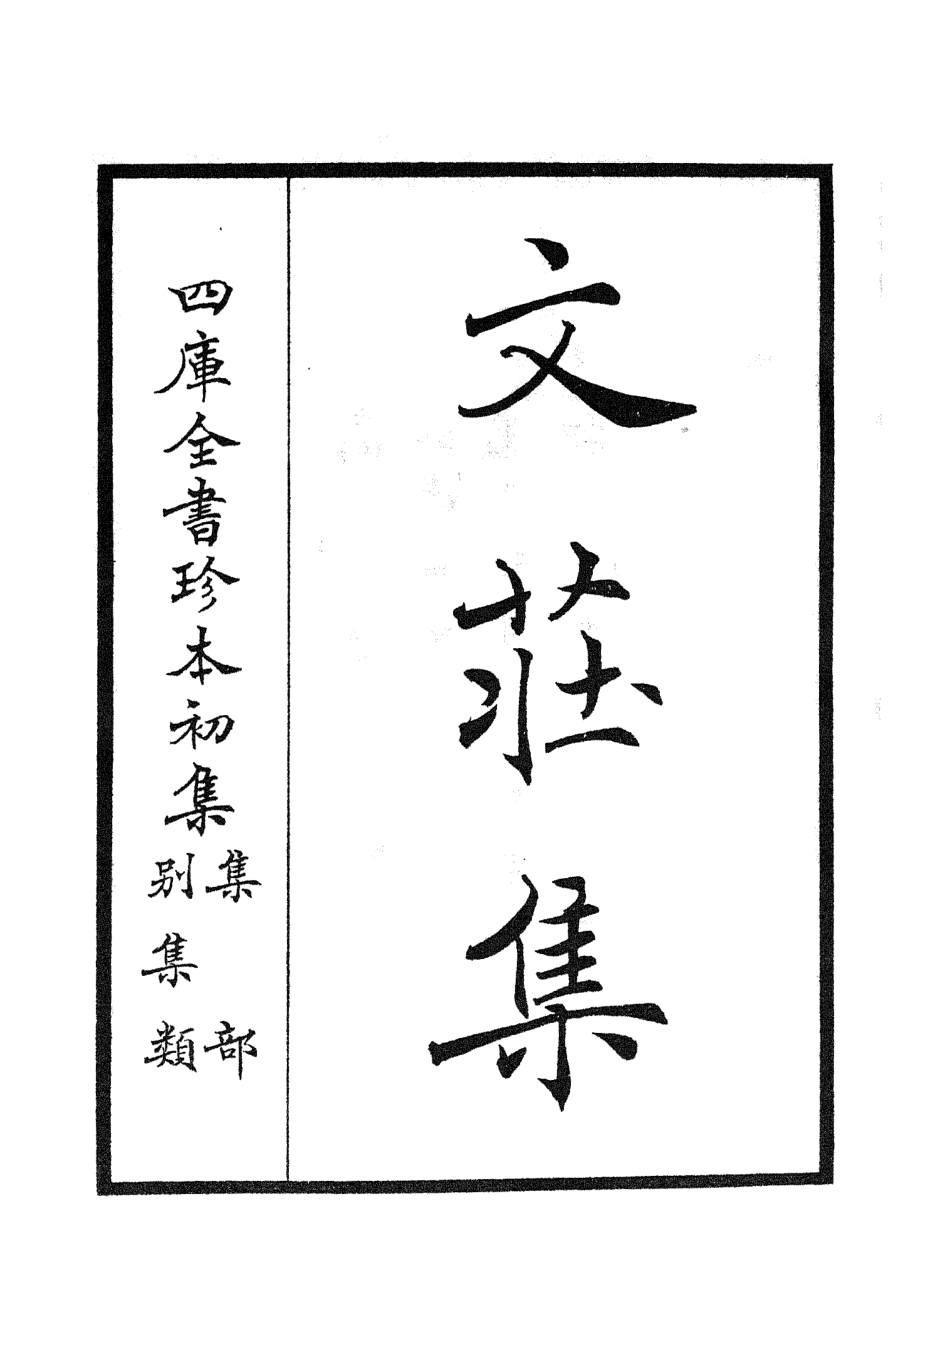 文莊集
四庫全書珍本初集
集部
別集類